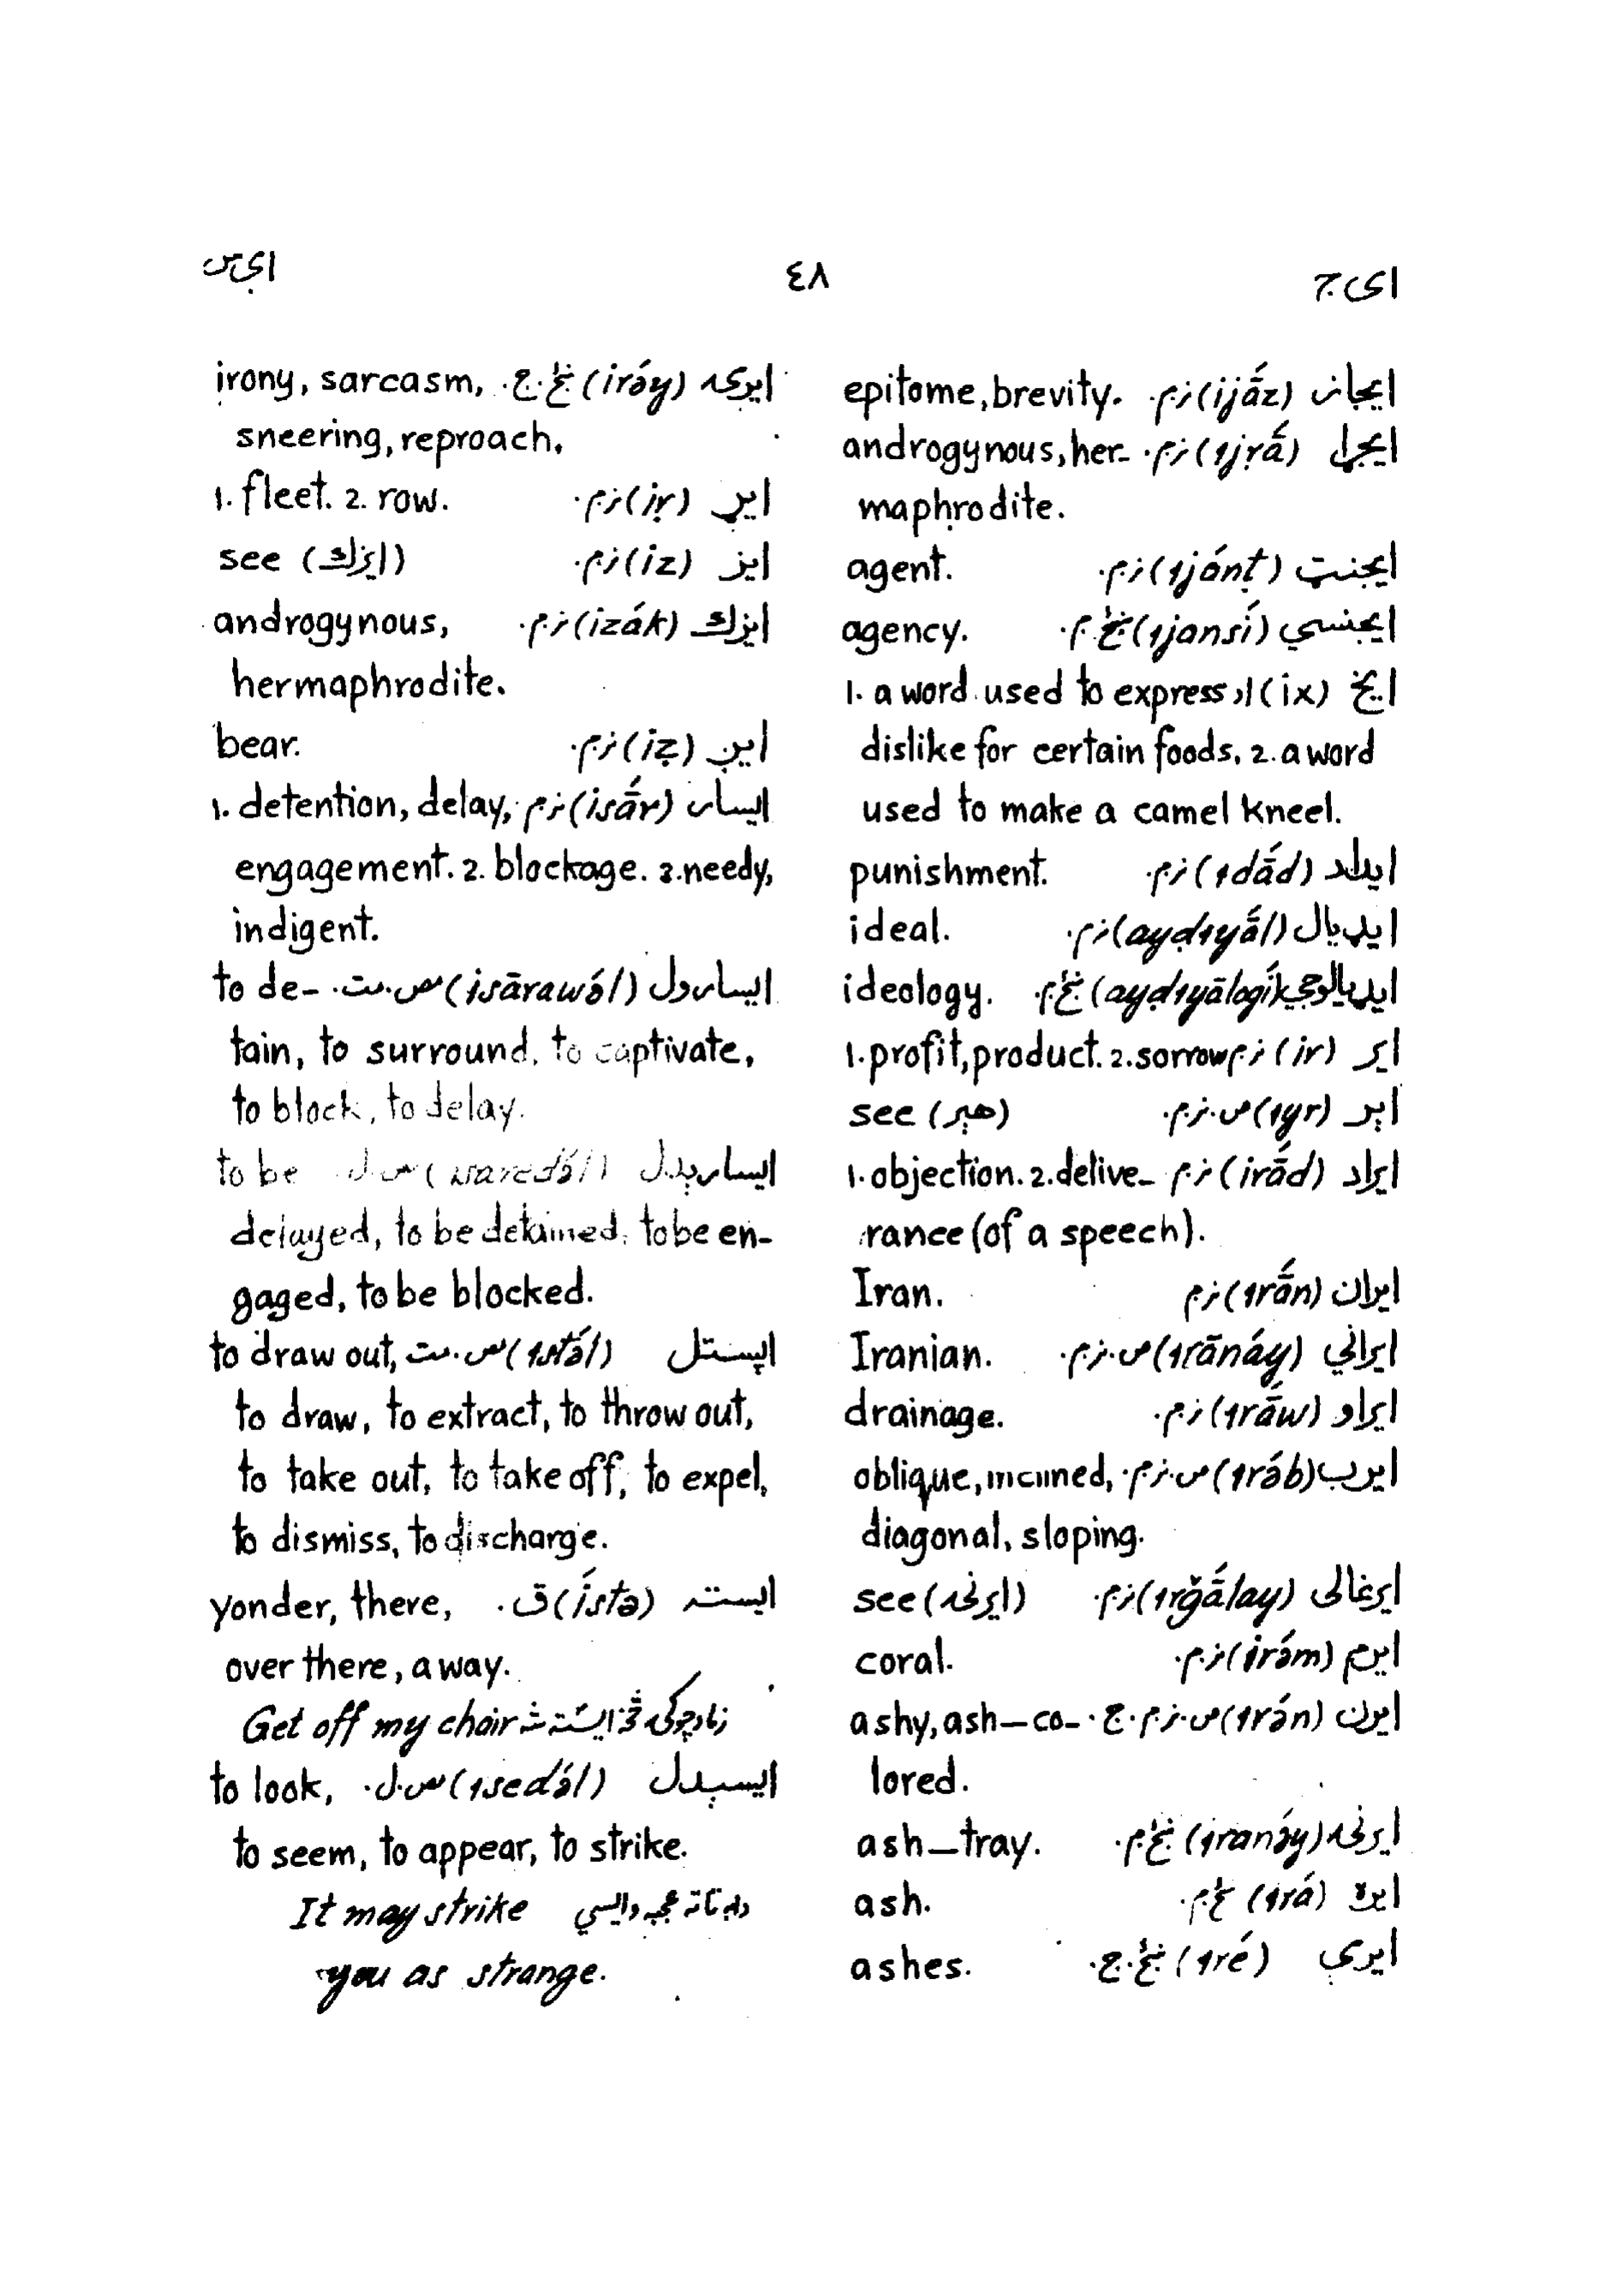 ای ج
٤٨
ای س
ایجاز (ijā́z) ن.م. epitome, brevity.
ایجړا (ıjṛā́) ن.م. androgynous, her-
maphrodite.
ایجنټ (ıjə́nṭ) ن.م. agent.
ایجنسي (ıjənsí) ښځ.م. agency.
ایخ (ix) ا.د 1. a word used to express
dislike for certain foods. 2. a word
used to make a camel kneel.
ایداد (ıdā́d) ن.م. punishment.
ایډیال (ayḍıyā́l) ن.م. ideal.
ایډیالوجي (ayḍıyālogí) ښځ.م. ideology.
ایر (ir) ن.م 1. profit, product. 2. sorrow
ایر (ıyr) ص.ن.م. see (هېر)
ایراد (irā́d) ن.م 1. objection. 2. delive-
rance (of a speech).
ایران (ırā́n) ن.م Iran.
ایراني (ırānáy) ص.ن.م. Iranian.
ایراو (ırā́w) ن.م. drainage.
ایرب (ırə́b) ص.ن.م. oblique, inclined,
diagonal, sloping.
ایرغالی (ırğā́lay) ن.م. see (ایرنۍ)
ایرم (irə́m) ن.م. coral.
ایرن (ırə́n) ص.ن.م.ج. ashy, ash-co-
lored.
ایرنۍ (ıranə́y) ښځ.م. ash-tray.
ایره (ırá) ښځ.م. ash.
ایرې (ıré) ښځ.ج. ashes.
ایرۍ (irə́y) ښځ.ج. irony, sarcasm,
sneering, reproach.
ایړ (iṛ) ن.م. 1. fleet. 2. row.
ایز (iz) ن.م. see (ایزک)
ایزک (izák) ن.م. androgynous,
hermaphrodite.
ایږ (iẓ) ن.م. bear.
ایسار (isā́r) ن.م 1. detention, delay,
engagement. 2. blockage. 3. needy,
indigent.
ایسارول (isārawə́l) س.مت. to de-
tain, to surround, to captivate,
to block, to delay.
ایسارېدل (isāredə́l) س.ل to be
delayed, to be detained, to be en-
gaged, to be blocked.
ایستل (ıstə́l) س.مت. to draw out,
to draw, to extract, to throw out,
to take out, to take off, to expel,
to dismiss, to discharge.
ایسته (ístə) ق. yonder, there,
over there, away.
Get off my chair
ایسېدل (ısedə́l) س.ل. to look,
to seem, to appear, to strike.
It may strike
you as strange.